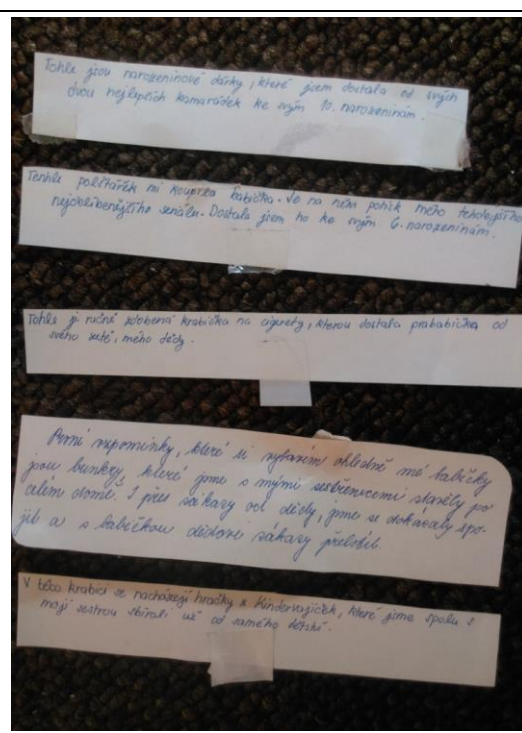 Tohle jsou narozeninové dárky, které jsem dostala od svých
dvou nejlepších kamarádek ke svým 10. narozeninám.
Tenhle polštářek mi koupila babička. Je na něm potisk mého tehdejšího
nejoblíbenějšího seriálu. Dostala jsem ho ke svým 6. narozeninám.
Tohle je ručně zdobená krabička na cigarety, kterou dostala prababička od
svého zetě, mého dědy.
První vzpomínky, které si vybavím ohledně mé babičky
jsou bunkry, které jsme s mými sestřenicemi stavěly po
celém domě. I přes zákazy od dědy, jsme se dokázaly spo-
jit a s babičkou dědovi zákazy přelstít.
V této krabici se nacházejí hračky z Kindervajíček, které jsme spolu s
mojí sestrou sbírali už od samého dětství.